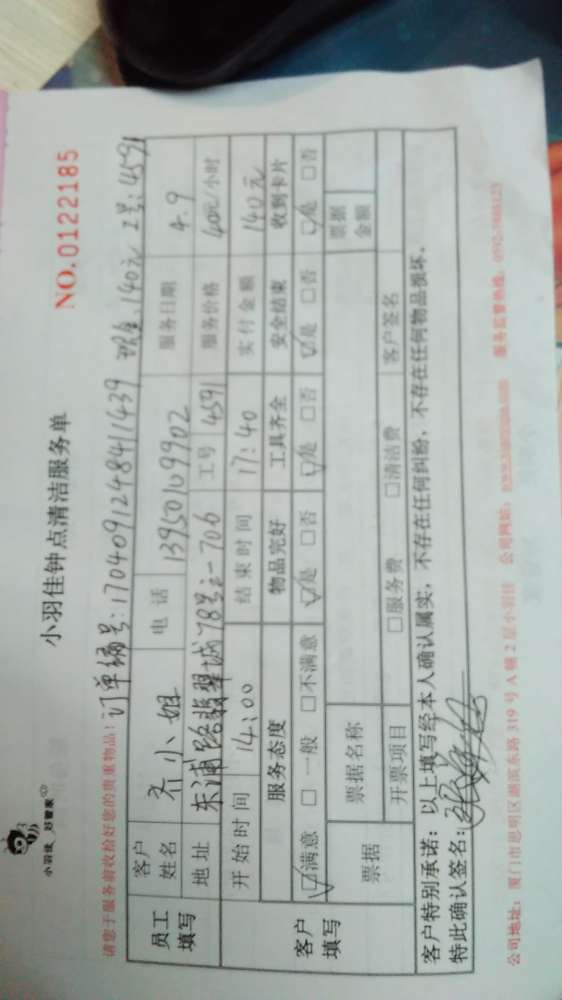 小羽佳 好管家
小羽佳钟点清洁服务单
NO.0122185
请您于服务前收拾好您的贵重物品!
订单编号:1704091248411439 现金:140元 工号:4591
员工填写
客户姓名 齐小姐 电话 13950109902 服务日期 4.9
地址 东浦路翡翠城78号之一706 工号 4591 服务价格 40元/小时
客户填写
开始时间 14:00 结束时间 17:40 实付金额 140元
服务态度 物品完好 工具齐全 安全结束 收到卡片
☑满意 □一般 □不满意 ☑是 □否 ☑是 □否 ☑是 □否 ☑是 □否
票据 票据名称 票据金额
开票项目 □服务费 □清洁费 客户签名
客户特别承诺:以上填写经本人确认属实,不存在任何纠纷,不存在任何物品损坏。
特此确认签名:
公司地址:厦门市思明区湖滨东路319号A幢2层小羽佳 公司网站: 服务监督热线: